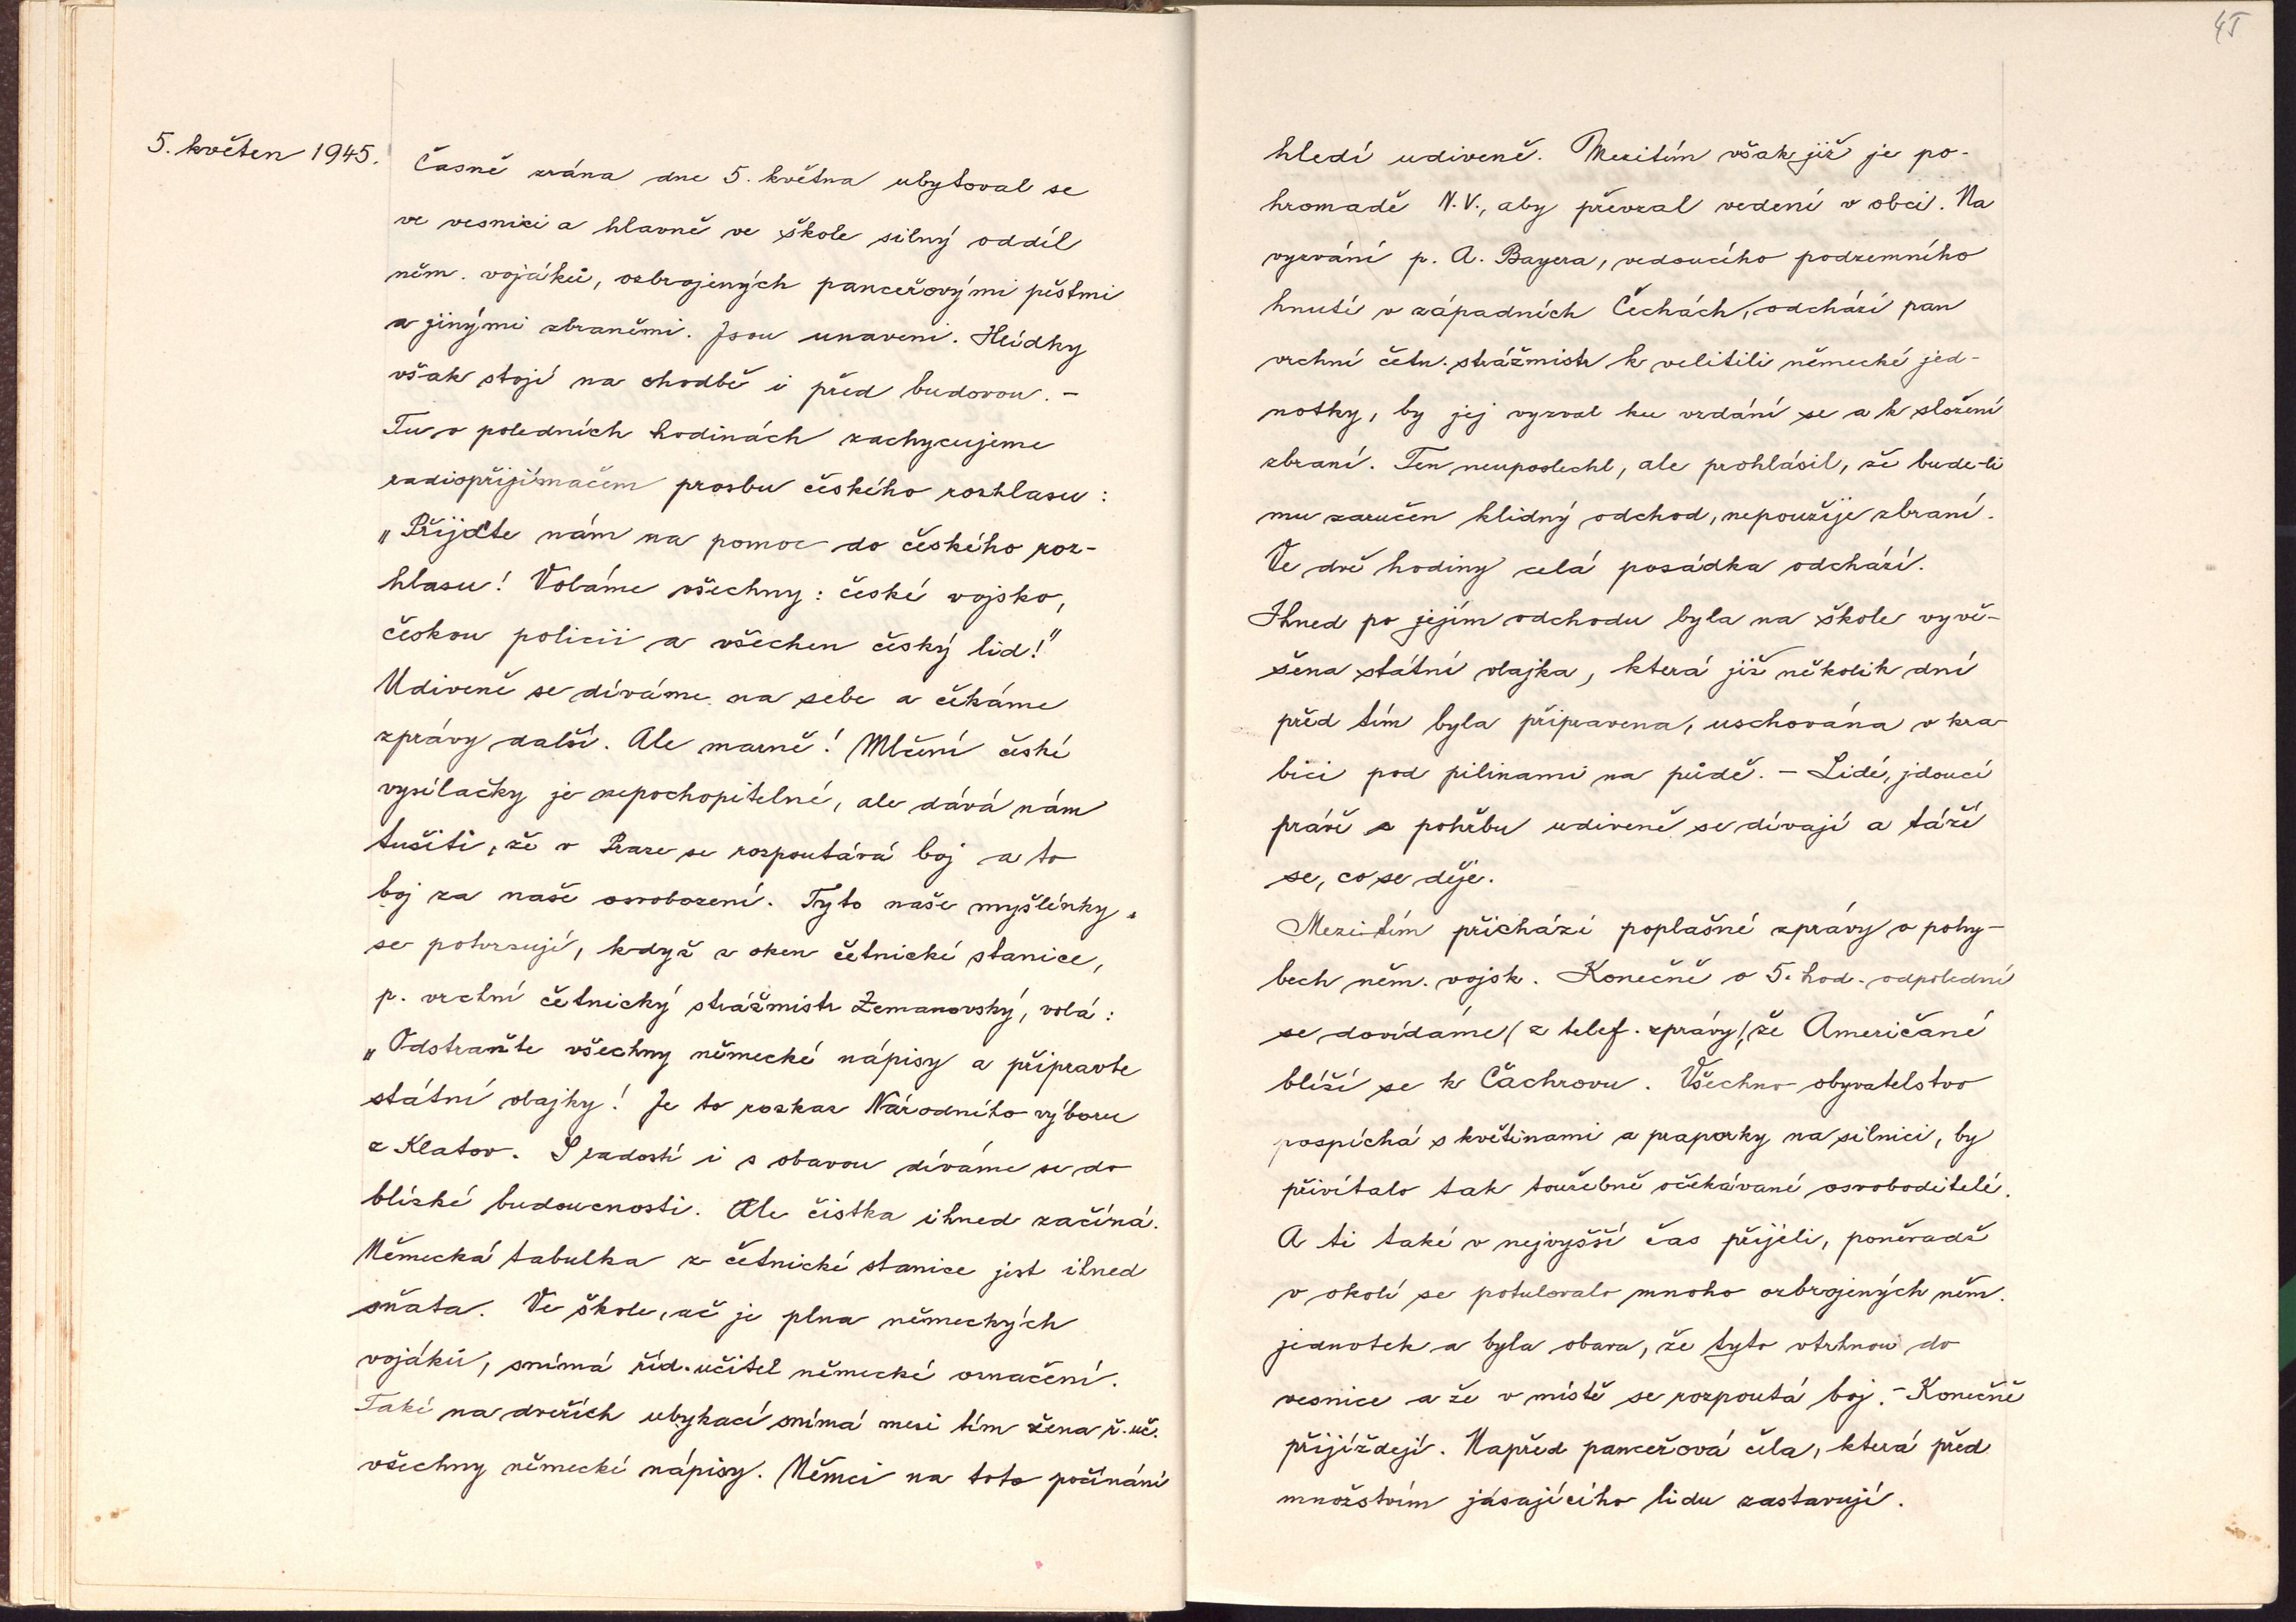 5. květen 1945.
Časně zrána dne 5. května ubytoval se
ve vesnici a hlavně ve škole silný oddíl
něm. vojáků, ozbrojených pancéřovými pěstmi
a jinými zbraněmi. Jsou unaveni. Hlídky
však stojí na chodbě i před budovou. -
Tu v poledních hodinách zachycujeme
radiopřijímačem prosbu českého rozhlasu:
„Přijďte nám na pomoc do českého roz-
hlasu! Voláme všechny: české vojsko,
českou policii a všechen český lid!"
Udiveně se díváme na sebe a čekáme
zprávy další. Ale marně! Mlčení české
vysílačky je nepochopitelné, ale dává nám
tušiti, že v Praze se rozpoutává boj a to
boj za naše osvobození. Tyto naše myšlénky
se potvrzují, když z oken četnické stanice,
p. vrchní četnický strážmistr Zemanovský, volá:
„Odstraňte všechny německé nápisy a připravte
státní vlajky! Je to rozkaz Národního výboru
z Klatov. S radostí i s obavou díváme se do
blízké budoucnosti. Ale čistka ihned začíná.
Německá tabulka z četnické stanice jest ihned
sňata. Ve škole, ač je plna německých
vojáků, snímá říd. učitel německé označení.
Také na dveřích ubykací snímá mezi tím žena ř. uč.
všechny německé nápisy. Němci na toto počínání
45
hledí udiveně. Mezitím však již je po-
hromadě N.V., aby převzal vedení v obci. Na
vyzvání p. A. Bayera, vedoucího podzemního
hnutí v západních Čechách, odchází pan
vrchní četn. strážmistr k veliteli německé jed-
notky, by jej vyzval ku vzdání se a k složení
zbraní. Ten neuposlechl, ale prohlásil, že bude-li
mu zaručen klidný odchod, nepoužije zbraní.
Ve dvě hodiny celá posádka odchází.
Ihned po jejím odchodu byla na škole vyvě-
šena státní vlajka, která již několik dní
před tím byla připravena, uschována v kra-
bici pod pilinami na půdě. - Lidé, jdoucí
právě s pohřbu udiveně se dívají a táží
se, co se děje.
Mezi tím přichází poplašné zprávy o pohy-
bech něm. vojsk. Konečně o 5. hod. odpolední
se dovídáme (z telef. zprávy), že Američané
blíží se k Čachrovu. Všechno obyvatelstvo
pospíchá s květinami a praporky na silnici, by
přivítalo tak toužebně očekávané osvoboditele.
A ti také v nejvyšší čas přijeli, poněvadž
v okolí se potulovalo mnoho ozbrojených něm.
jednotek a byla obava, že tyto vtrhnou do
vesnice a že v místě se rozpoutá boj. - Konečně
přijíždějí. Napřed pancéřová děla, která před
množstvím jásajícího lidu zastavují.